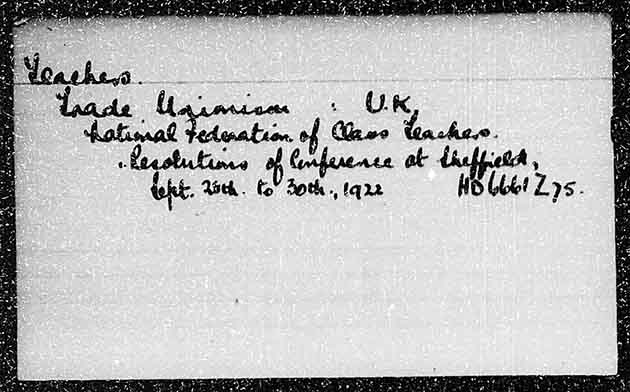 Teachers.
Trade Unionism : U.K.
National Federation of Class Teachers.
Resolutions of Conference at Sheffield,
Sept. to 30th., 1922 HD6661Z75.